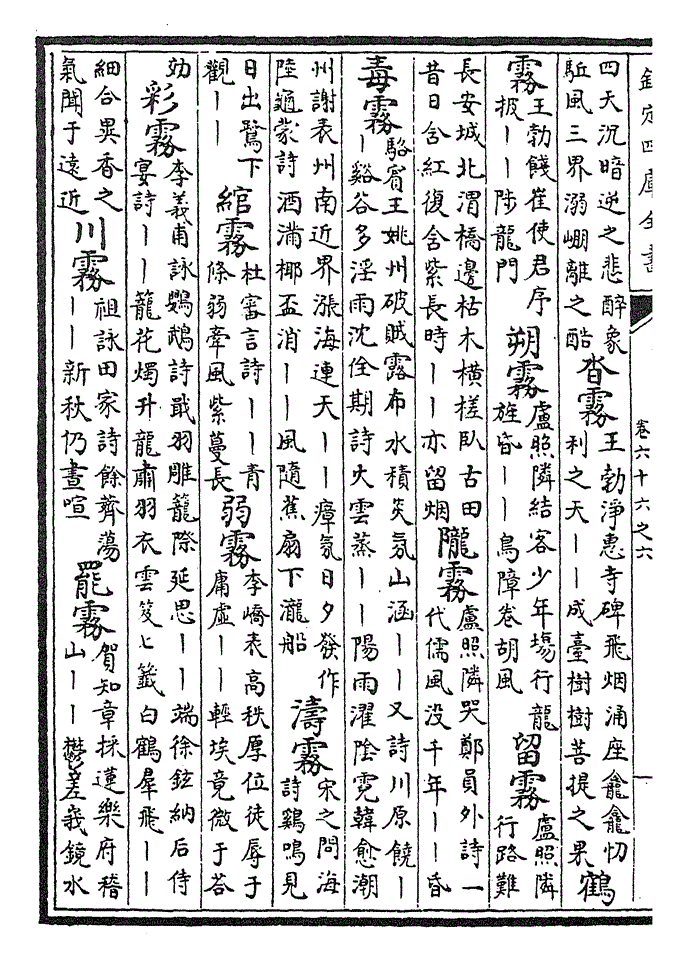 欽定四庫全書
卷六十六之六
一
四天沉暗逆之悲醉象
駈風三界溺崩離之酷
沓霧
王勃淨惠寺碑飛烟涌座龕龕忉
利之天丨丨成臺樹樹菩提之果
鶴
霧
王勃餞崔使君序
披丨丨陟龍門
朔霧
盧照隣結客少年場行龍
旌昏丨丨鳥障卷胡風
留霧
盧照隣
行路難
長安城北渭橋邊枯木橫槎臥古田
昔日含紅復含紫長時丨丨亦留烟
隴霧
盧照隣哭鄭員外詩一
代儒風没千年丨丨昏
毒霧
駱賓王姚州破賊露布水積炎氛山涵丨丨又詩川原饒丨
丨谿谷多淫雨沈佺期詩火雲蒸丨丨陽雨濯陰霓韓愈潮
州謝表州南近界漲海連天丨丨瘴氛日夕發作
陸龜蒙詩酒滿椰盃消丨丨風隨蕉扇下瀧船
濤霧
宋之問海
詩鷄鳴見
日出鷺下
觀丨丨
綰霧
杜審言詩丨丨青
條弱牽風紫蔓長
弱霧
李嶠表高秩厚位徒辱于
庸虛丨丨輕埃竟微于荅
効
彩霧
李義甫詠鸚鵡詩戢羽雕籠際延思丨丨端徐鉉納后侍
宴詩丨丨籠花燭升龍肅羽衣雲笈七籤白鶴羣飛丨丨
細合異香之
氣聞于遠近
川霧
祖詠田家詩餘薺蕩
丨丨新秋仍晝喧
罷霧
賀知章採蓮樂府稽
山丨丨鬱嵳峩鏡水